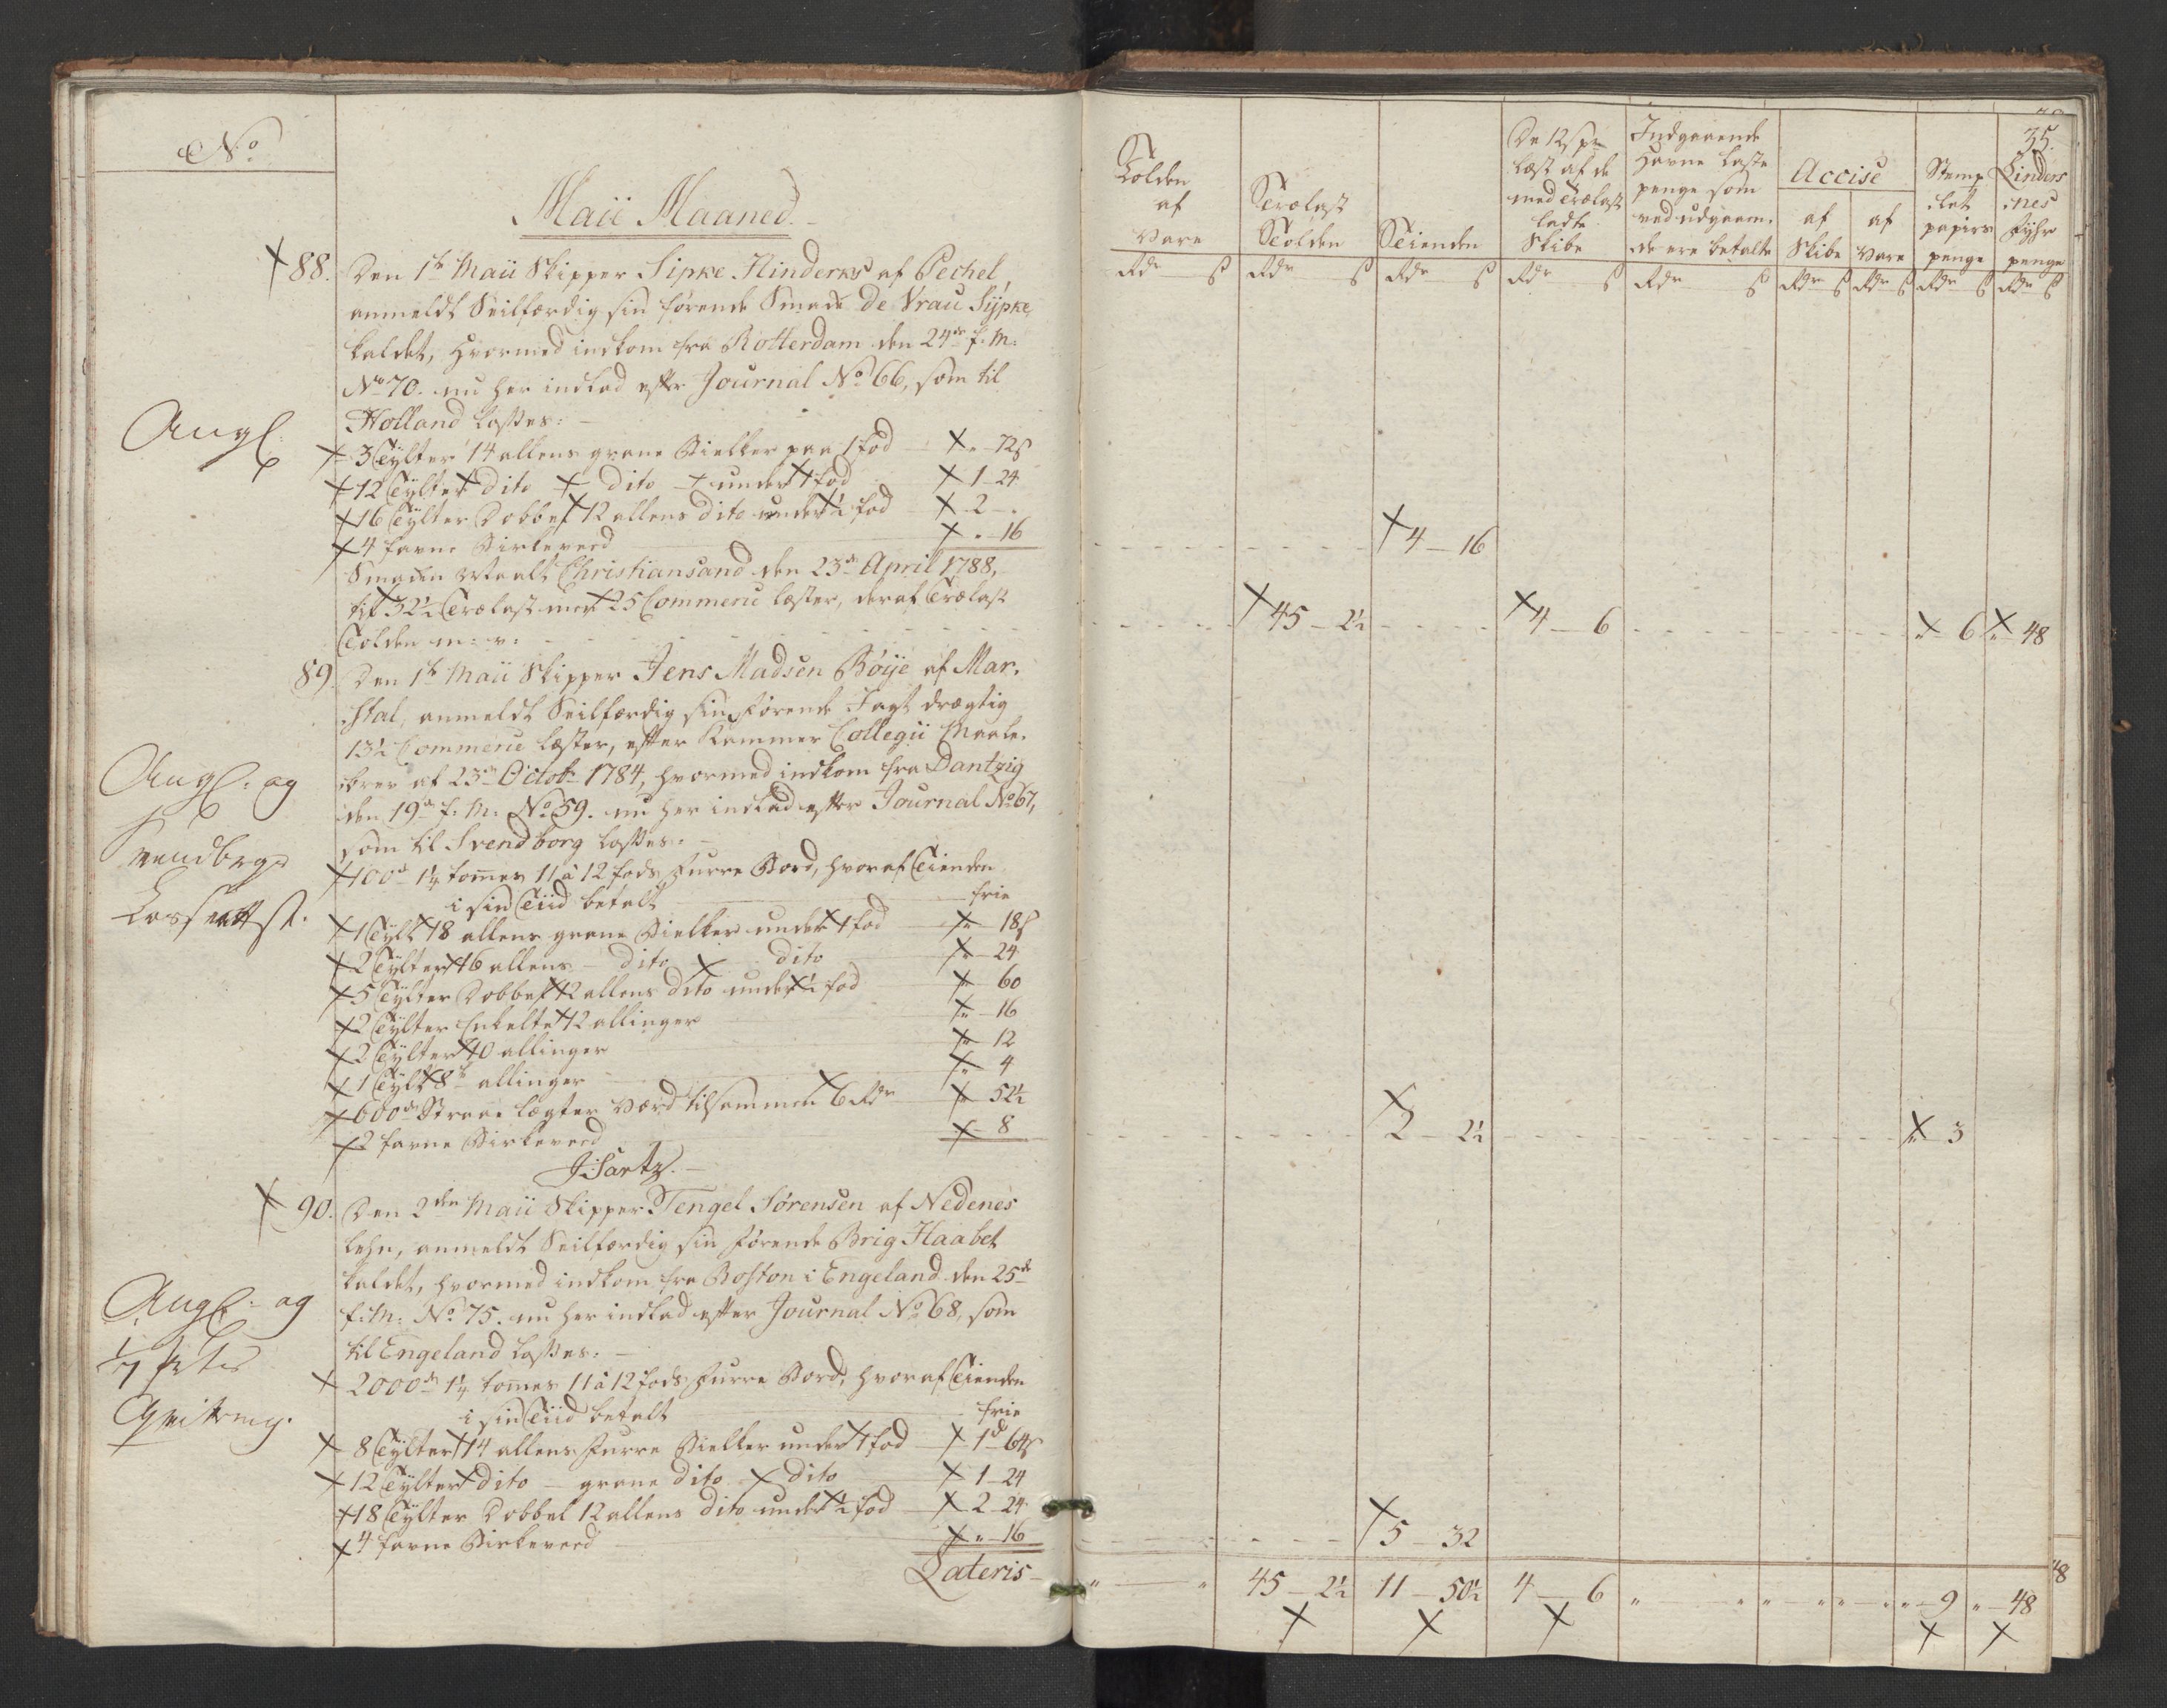 No
Maii Maaned
88. Den 1te Maii Skipper Sipke Hinderks af Pechel,
anmeldt Seilfærdig sin førende Smak De Vrau Sÿpke,
kaldet, hvormed indkom fra Rotterdam den 24de f: M:
No 70. nu her indlad efter Journal No 66, som til
Holland losses:
Angl:
3 Tÿlter 14 allens grane Bielker paa 1 fod " - 72s
12 Tÿlter dito dito under 1 fod 1 - 24
16 Tÿlter Dobbel 12 allens dito under ½ fod 2 - "
4 favne Birkeveed " - 16
4 - 16
Smaken Maalt Christiansand den 23de April 1788,
til 32½ Trælast mer 25 Commerce læster, deraf Trælast
Tolden m: v:
45 - 2½ 4 - 6 " 6 " 48
89. Den 1te Maii Skipper Jens Madsen Bøÿe af Mar-
stal, anmeldt Seilfærdig sin førende Jagt drægtig
13½ Commerce læster, efter Kammer Collegii Maale-
brev af 23de Octobr 1784, hvormed indkom fra Dantzig
den 19de f: M: No 59. nu her indlad efter Journal No 67,
som til Svendborg losses:
Angl: og
Svendborgs
Losse attest.
100de 1¼ tommes 11 à 12 fods Furre Bord, hvoraf Tienden
i sin Tiid betalt frie
1 Tÿlt 18 allens grane Bielker under 1 fod " 18s
2 Tÿlter 16 allens dito dito " 24
5 Tÿlter Dobbel 12 allens dito under ½ fod " 60
2 Tÿlter Enkelte 12 allinger " 16
2 Tÿlter 10 allinger " 12
1 Tÿlt 8te allinger " 4
600de Straae lægter værd tilsammen 6 Rdr " 52½
2 favne Birkeveed " 8
2 - 2½ " 3
J: Sartz.
90. Den 2den Maii Skipper Tengel Sørensen af Nedenes
Lehn, anmeldt Seilfærdig sin førende Brig Haabet
kaldet, hvormed indkom fra Boston i Engeland den 25de
f: M: No 75. nu her indlad efter Journal No 68, som
til Engeland losses:
Angl: og
2000de 1¼ tommes 11 à 12 fods Furre Bord, hvoraf Tienden
i sin Tiid betalt frie
8 Tÿlter 14 allens Furre Bielker under 1 fod 1d 64s
12 Tÿlter dito grane dito dito 1 - 24
18 Tÿlter Dobbel 12 allens dito under ½ fod 2 - 24
4 favne Birkeveed " - 16
5 - 32
Lateris
" " 45 - 2½ 11 - 50½ 4 - 6 " " " " " " " 9 " 48
35.
Tolden af Vare
Trælast Tolden
Tienden
De 12s pr læst af de med Trælast ladte Skibe
Indgaaende Havne Laste penge som ved udgaaende ere betalte
Accise
af Skibe
af Vare
Stemplet papirs penge
Lindersnes Fÿhr penge
Rdr s Rdr s Rdr s Rdr s Rdr s Rdr s Rdr s Rdr s Rdr s
48